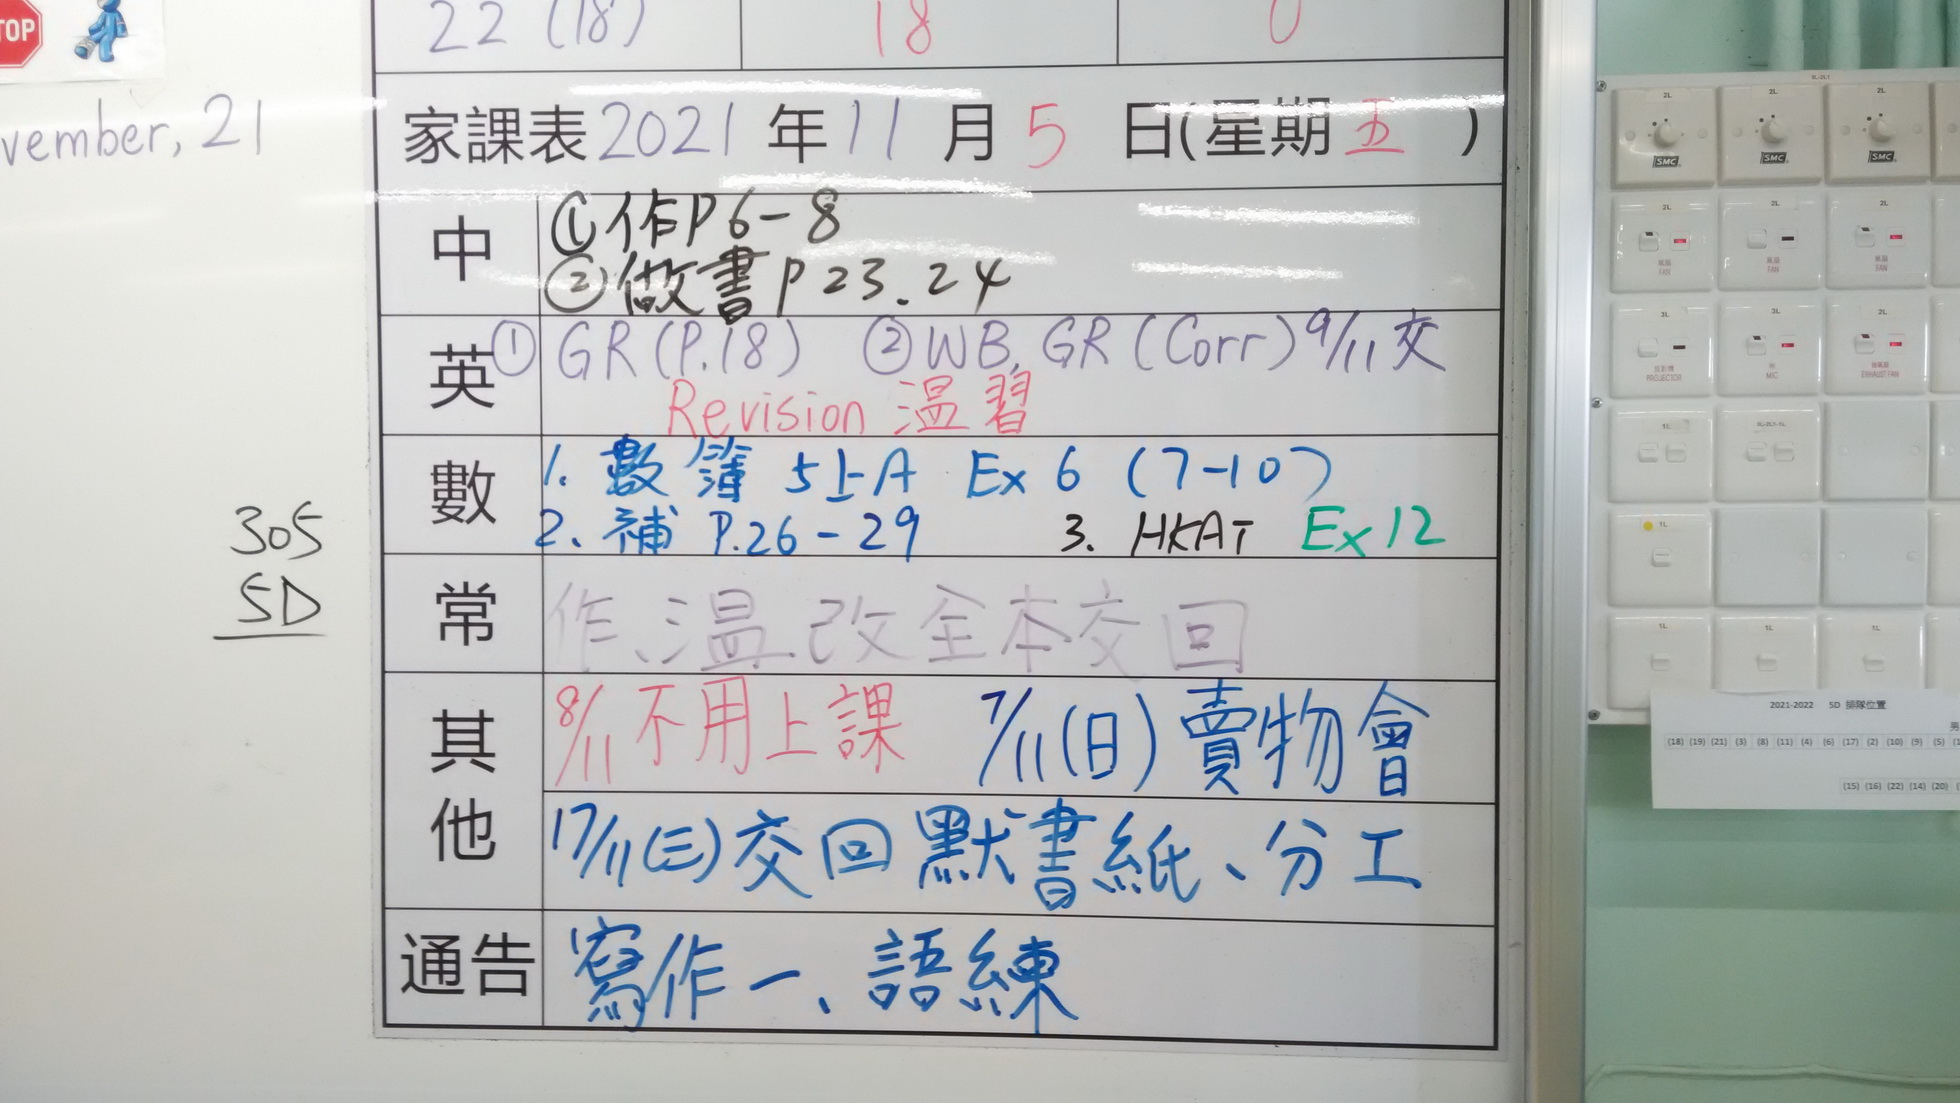 TOP
22 (18) 18 0
vember, 21
家課表 2021 年 11 月 5 日(星期五)
中
①作P6-8
②做書P23.24
英
① GR (P.18) ② WB, GR (Corr) 9/11交
Revision 溫習
數
1. 數簿 5上A Ex 6 (7-10)
2. 補 P.26-29 3. HKAT Ex 12
305
5D
常
作、溫、改全本交回
其他
8/11不用上課 7/11(日)賣物會
17/11(三)交回默書紙、分工
通告
寫作一、語練
1L/2L1
2L 2L 2L
SMC SMC SMC
2L 2L 2L
風扇 風扇 風扇
FAN FAN FAN
3L 3L 2L
投影機 咪 抽氣扇
PROJECTOR MIC EXHAUST FAN
1L
1L
1L 1L 1L
2021-2022 5D 排隊位置
男
(18) (19) (21) (3) (8) (11) (4) (6) (17) (2) (10) (9) (5)
(15) (16) (22) (14) (20)